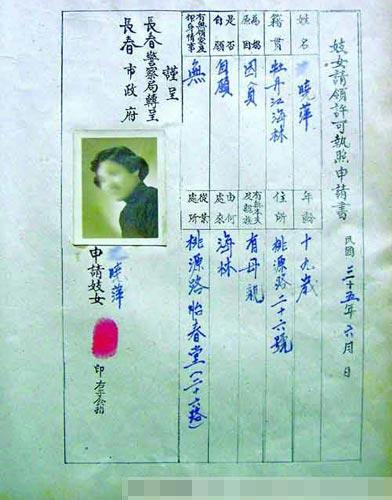 妓女請領許可執照申請書
民國三十五年六月 日
姓名 曉萍
年齡 十九歲
籍貫 牡丹江海林
住所 桃源路二十六號
為娼原因 因貧
有無本夫及親族 有母親
是否自願 自願
由何處來 海林
有無領家及 無
從業處所 桃源路怡春堂(二十六號)
謹呈
長春警察局轉呈
長春市政府
申請妓女 曉萍
印 右手食指